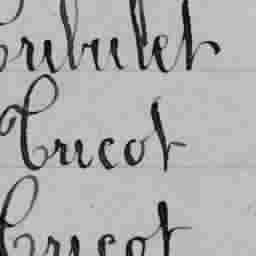 Tribulet
Tricot
Tricot